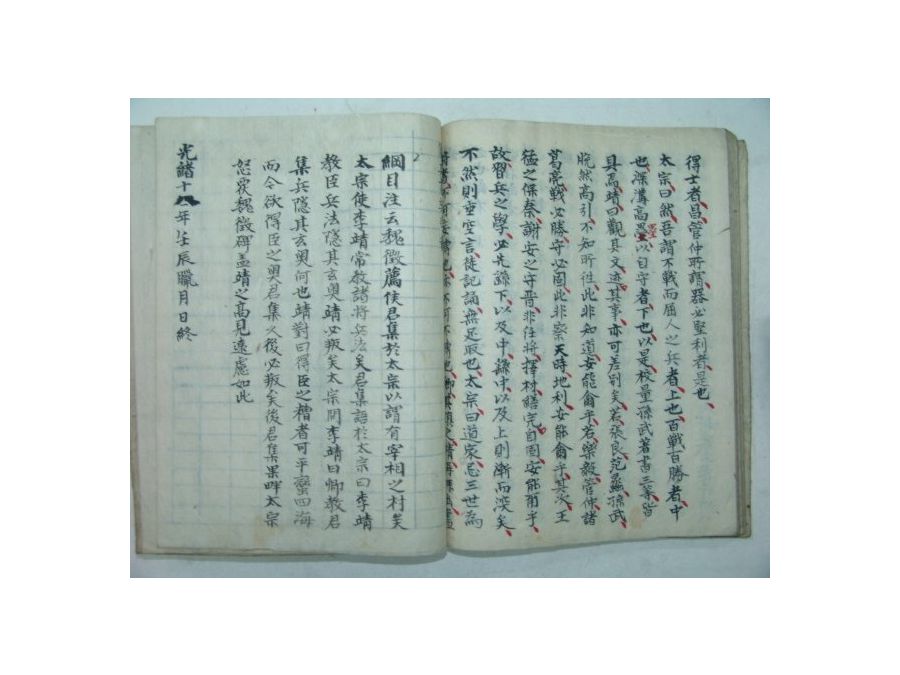 得士者昌管仲所謂器必堅利者是也
太宗曰然吾謂不戰而屈人之兵者上也百戰百勝者中
也深溝高壘以自守者下也以是校量孫武著書三等皆
具焉靖曰觀其文迹其事亦可差別矣若張良范蠡孫武
脫然高引不知所往此非知道安能爾乎若樂毅管仲諸
葛亮戰必勝守必固此非察天時地利安能爾乎其次王
猛之保秦謝安之守晉非任將擇材繕完自固安能爾乎
故習兵之學必先繇下以及中繇中以及上則漸而深矣
不然則垂空言徒記誦無足取也太宗曰道家忌三世為
將者
綱目注云魏徵薦侯君集於太宗以謂有宰相之材矣
太宗使李靖常教諸將兵法矣君集語於太宗曰李靖
教臣兵法隱其玄奧靖必叛矣太宗問李靖曰卿教君
集兵隱其玄奧何也靖對曰得臣之糟者可平蠻四海
而令欲得臣之奧君集久後必叛矣後君集果畔太宗
怒覆魏徵碑盖靖之高見遠慮如此
光諸十八年壬辰臘月日終